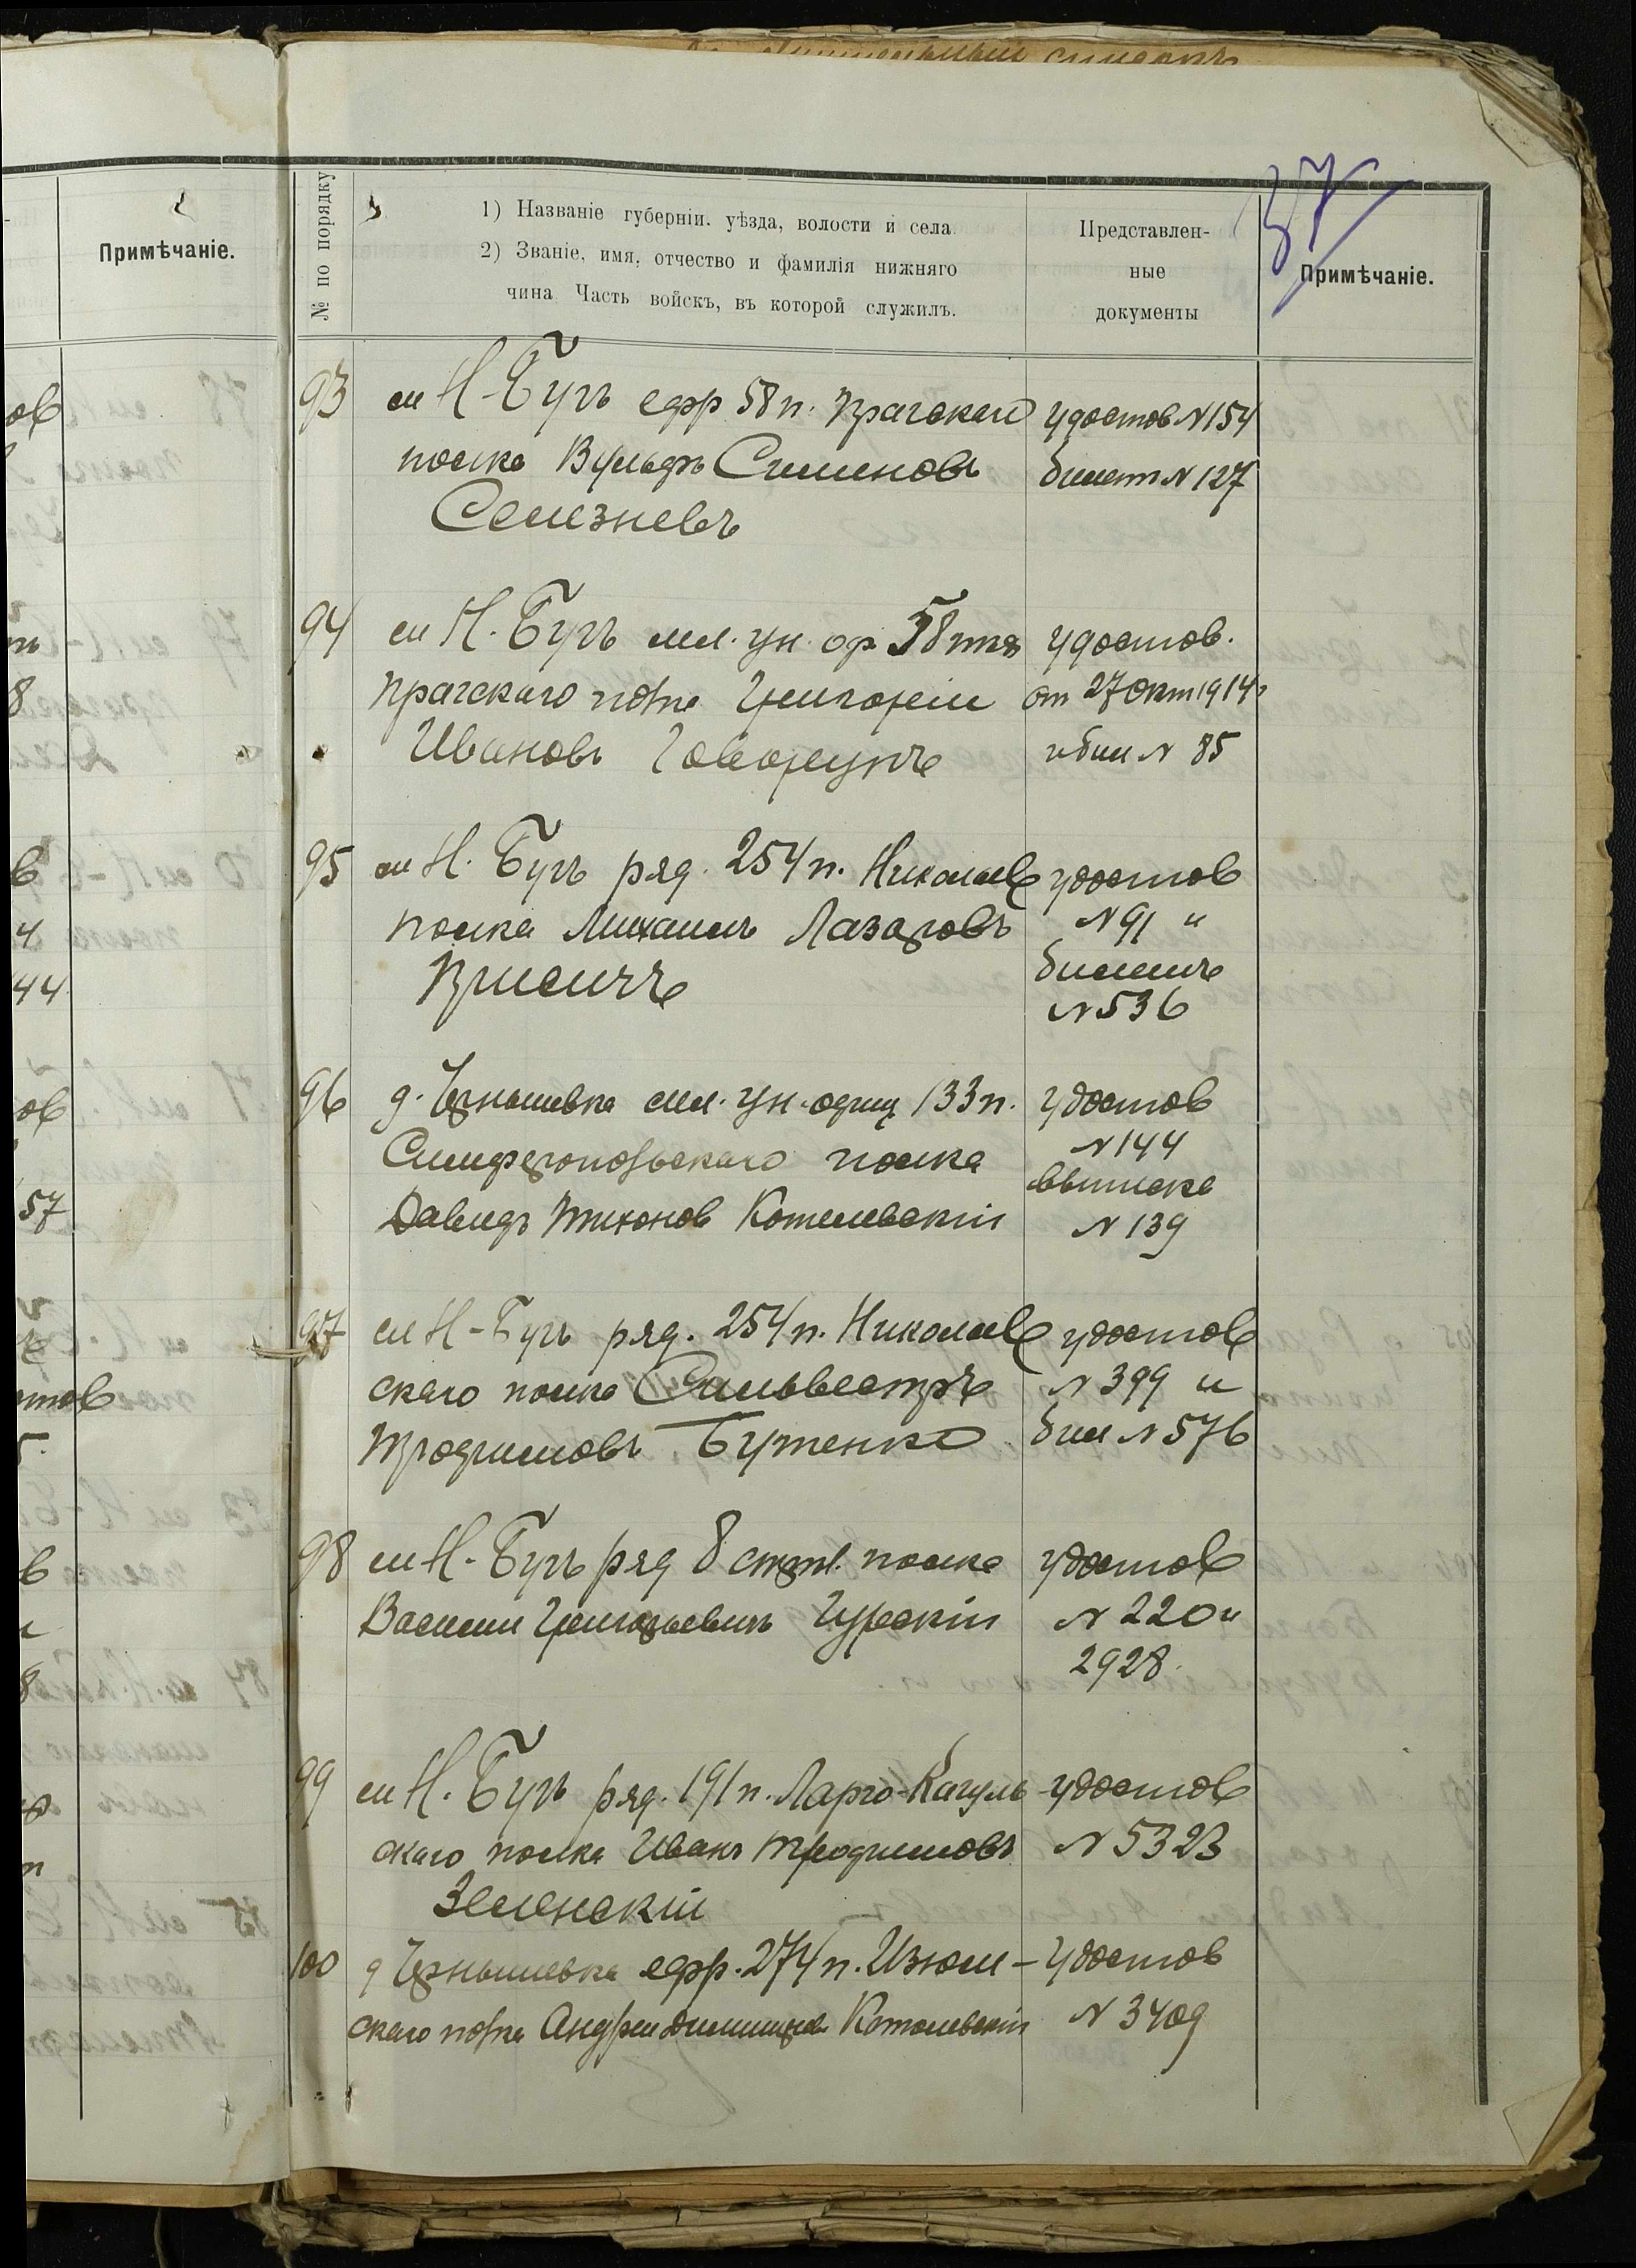 37
Примѣчаніе.
№ по порядку
1) Названіе губерніи. уѣзда, волости и села
2) Званіе, имя, отчество и фамилія нижняго
чина Часть войскъ, въ которой служилъ.
Представлен-
ные
документы
Примѣчаніе.
93 сл Н-Бугъ ефр 58 п. Прагскаго
полка Симоновъ
Селезневъ
удостов N 154
билет N 127
94 сл Н. Бугъ мл. ун. оф. 58 пѣх
Прагскаго полка Григорій
Ивановъ Говорунъ
удостов.
от 27 окт 1914 г
и бил N 85
95 сл Н. Бугъ ряд. 254 п. Николаев
полка Михаилъ Лазаровъ
удостов
N 91 и
билетъ
N 536
96 д. Чернышевка мл. ун. офиц 133 п.
Симферопольскаго полка
Давидъ Тихонов Котелевскій
удостов
N 144
выписка
N 139
97 сл Н-Бугъ ряд. 254 п. Николаев
скаго полка Сильвестръ
Трофимовъ Бутенко
удостов
N 399 и
бил N 576
98 сл Н-Бугъ ряд 8 стрл. полка
Василий Григорьевичъ Гурскій
удостов
N 220 и
2928.
99 сл Н. Бугъ ряд. 191 п. Ларго-Кагуль
скаго полка Иванъ Трофимовъ
Зеленскій
удостов
N 5323
100 д Чернышевка ефр. 274 п. Изюм-
скаго полка Андрей Котелевскій
удостов
N 3409